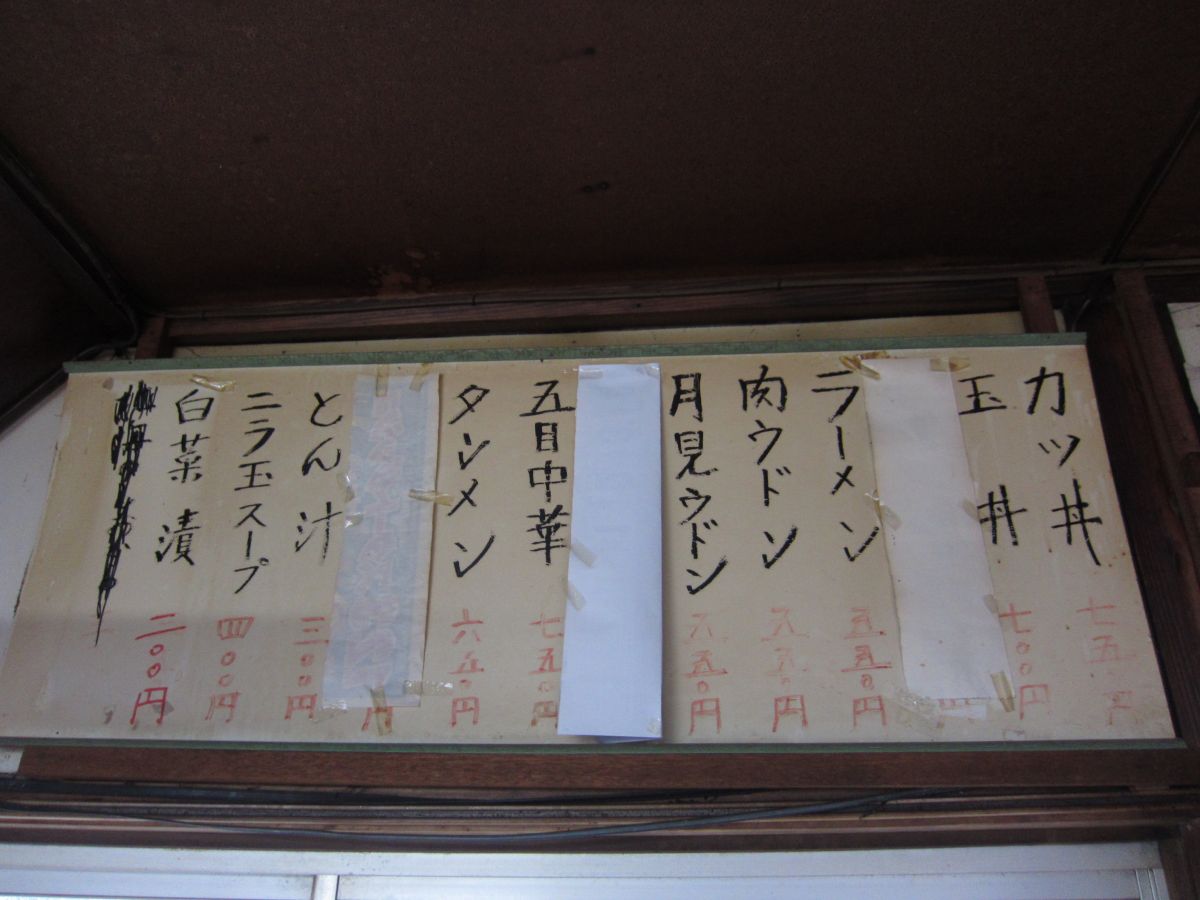 カツ丼
七五〇円
玉丼
七〇〇円
ラーメン
五五〇円
肉ウドン
円
月見ウドン
六五〇円
五目中華
七五〇円
タンメン
六五〇円
円
とん汁
三〇〇円
ニラ玉スープ
四〇〇円
白菜漬
二〇〇円